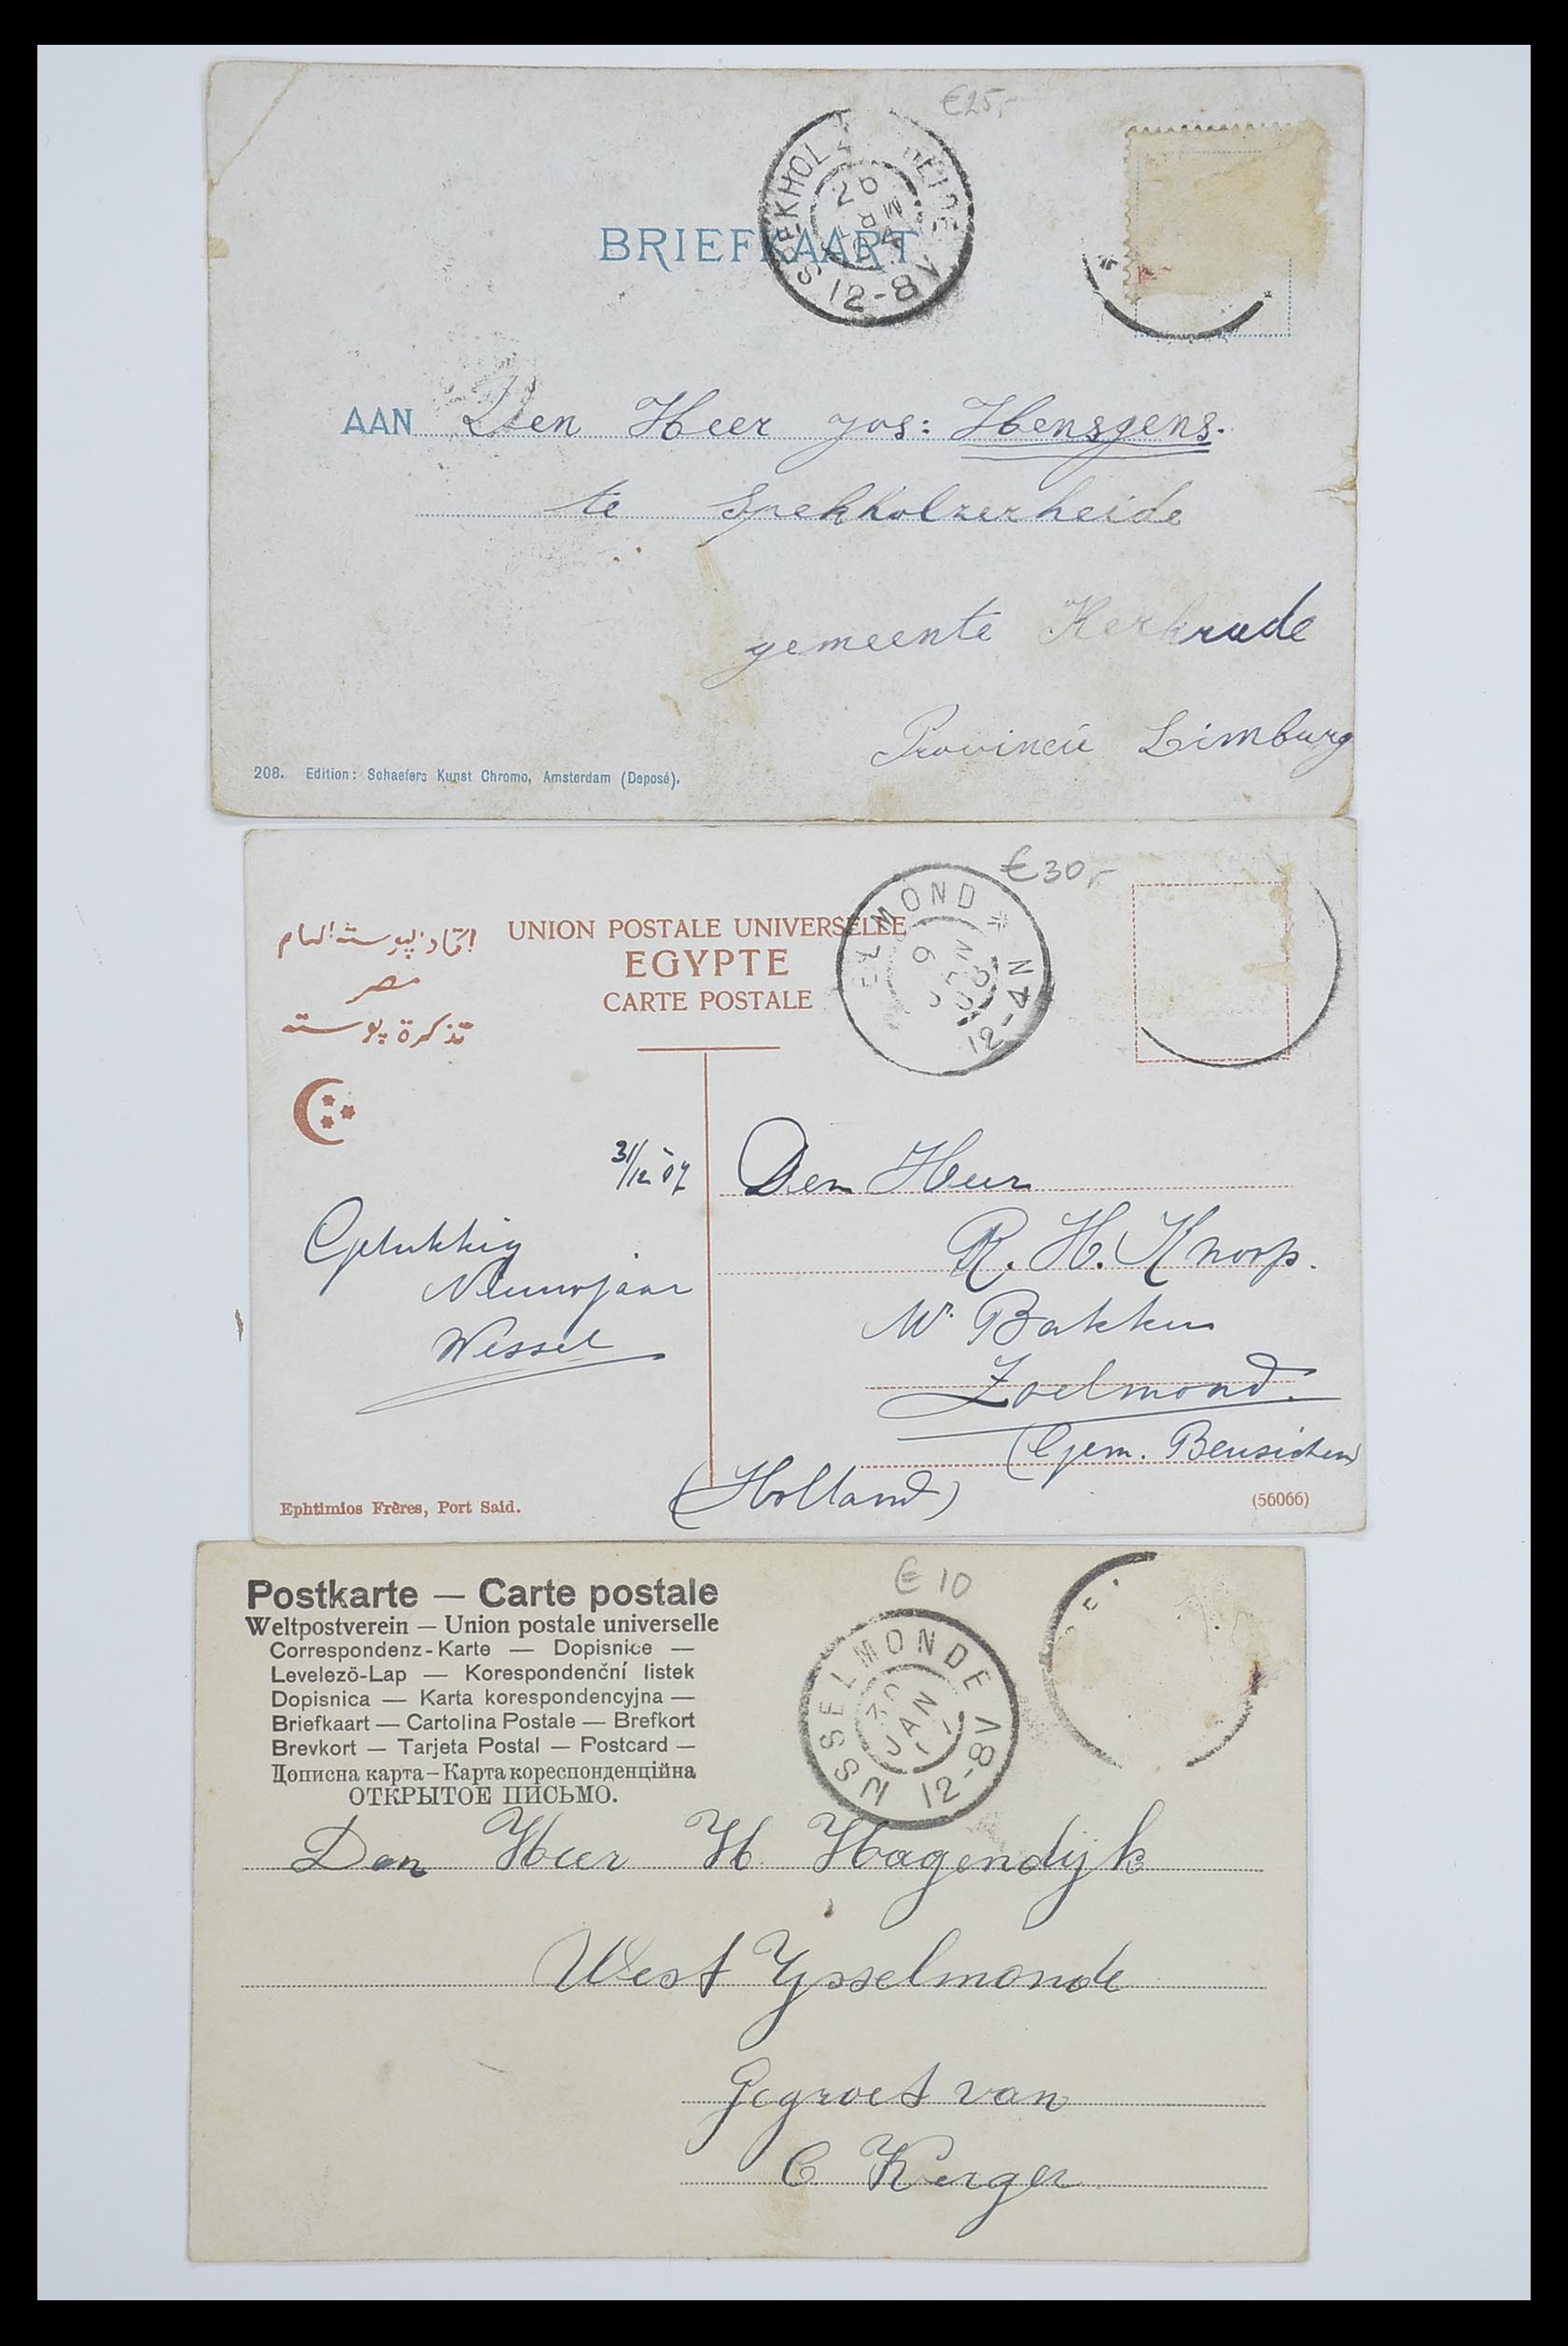 €25,-
BRIEFKAART
12-8V
AAN Den Heer Jos: Hensgens.
te Spekholzerheide
gemeente Kerkrade
Provincie Limburg
208. Edition: Schaefers Kunst Chromo, Amsterdam (Deposé).
€30,-
UNION POSTALE UNIVERSELLE
EGYPTE
CARTE POSTALE
مصر
تذكرة پوستة
12-4N
31/12 07
Den Heer
R. H. Knoop.
Gelukkig
Nieuwjaar
Wessel
Bakker
Zoelmond.
(Gem. Beusichem)
(Holland)
Ephtimios Frères, Port Said.
(56066)
€ 10
Postkarte — Carte postale
Weltpostverein — Union postale universelle
Correspondenz-Karte — Dopisnice —
Levelezö-Lap — Korespondenční listek
Dopisnica — Karta korespondencyjna —
Briefkaart — Cartolina Postale — Brefkort
Brevkort — Tarjeta Postal — Postcard —
Дописна карта – Карта кореспонденційна
ОТКРЫТОЕ ПИСЬМО.
IJSSELMONDE
JAN
12-8V
Den Heer H Hagendijk
West Ysselmonde
Gegroet van
C Kerger